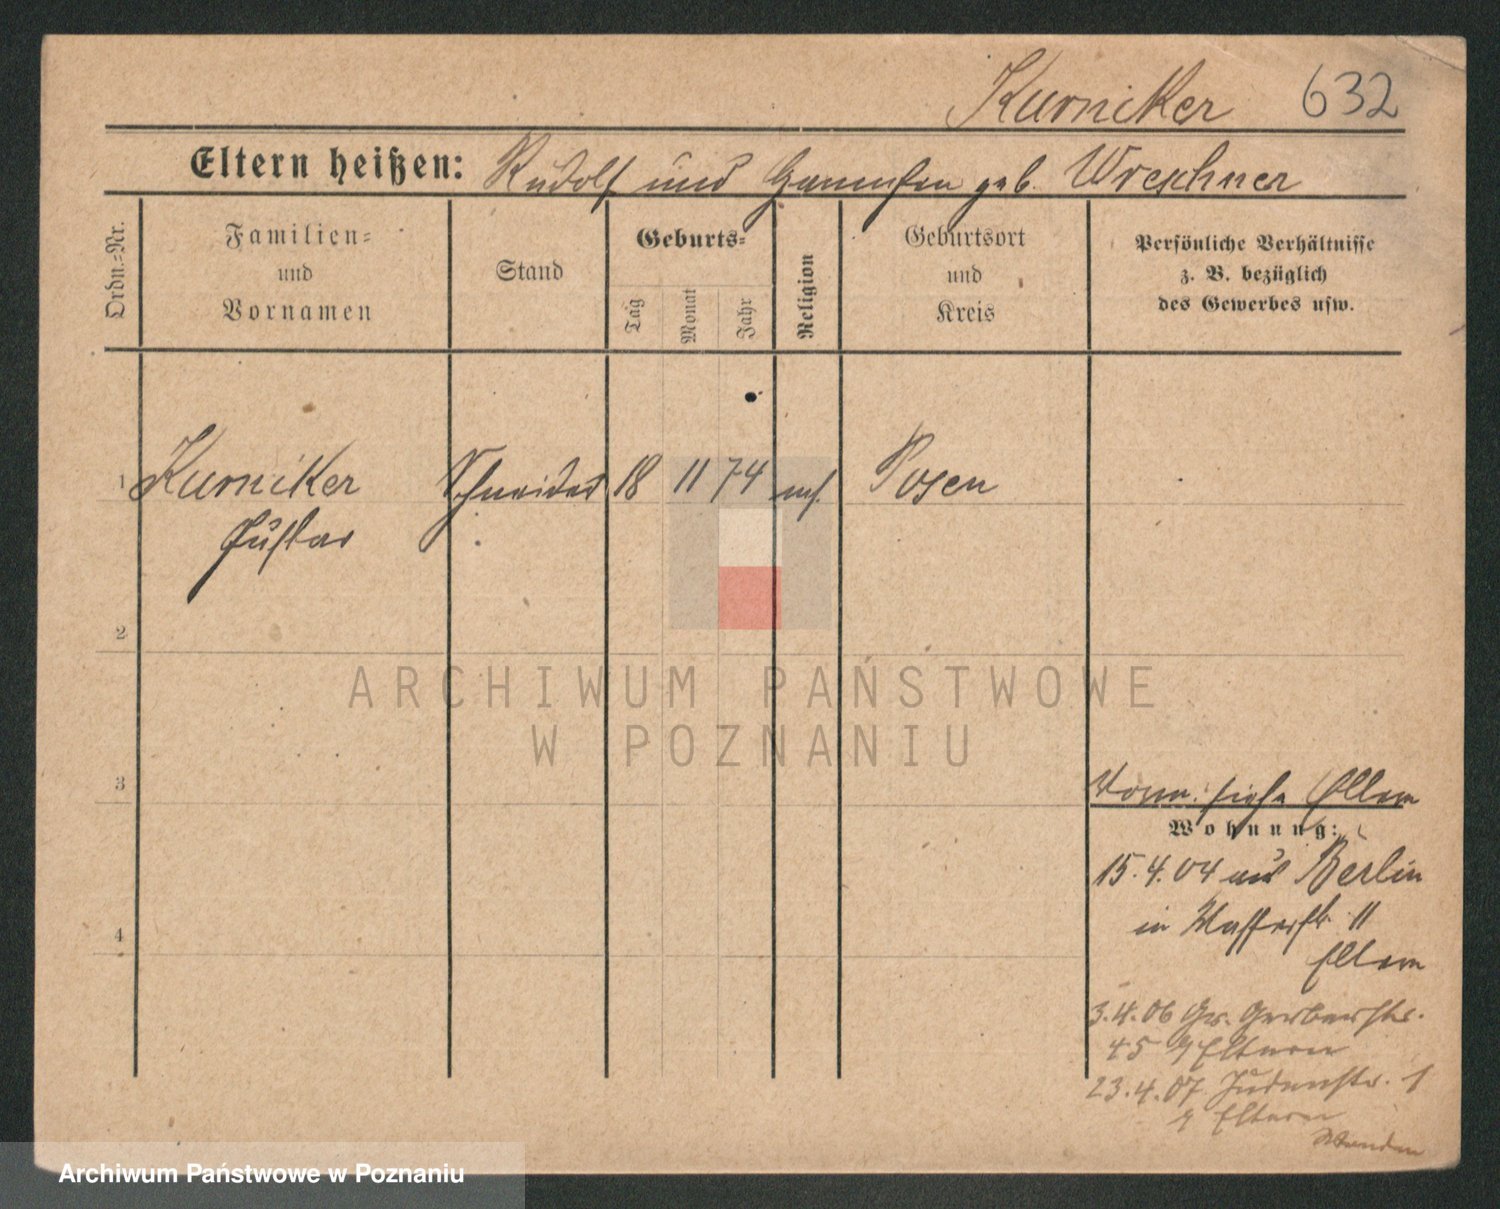 Kurniker 632
Eltern heißen: Rudolf und geb. Wreschner
Ordn.=Nr.
Familien=
und
Vornamen
Stand
Geburts=
Tag
Monat
Jahr
Religion
Geburtsort
und
Kreis
Persönliche Verhältnisse
z. B. bezüglich
des Gewerbes usw.
1 Kurniker Schneider 18 11 74 mos. Posen
Gustav
2
3
4
ARCHIWUM PAŃSTWOWE
W POZNANIU
siehe Eltern
Wohnung:
15.4.04 aus Berlin
in Wasserstr. 11
Eltern
3.4.06 Gr. Gerberstr.
45 Eltern
23.4.07 Judenstr. 1
Eltern
Wenden
Archiwum Państwowe w Poznaniu